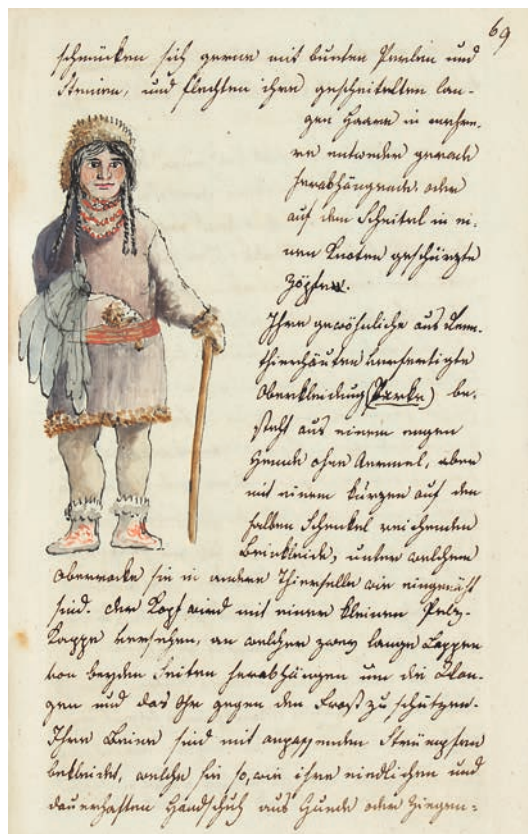 69
schmücken sich gerne mit bunten Perlen und
Steinen, und flechten ihre gescheitelten lan-
gen Haare in mehre-
re entweder gerade
herabhängende, oder
auf dem Scheitel in ei-
nen Knoten geschürzte
Zöpfe.
Ihre gewöhnliche aus Renn-
thierhäuten verfertigte
Oberkleidung (Parka) be-
steht aus einem engen
Hemde ohne Aermel, aber
mit einem kurzen auf den
halben Schenkel reichenden
Beinkleide, unter welchem
Oberrocke sie in andere Thierfelle wie eingenäht
sind. Der Kopf wird mit einer kleinen Pelz-
Kappe versehen, an welcher zwey lange Lappen
von beyden Seiten herabhängen um die Wan-
gen und das Ohr gegen den Frost zu schützen.
Ihre Beine sind mit anpassenden Strümpfen
bekleidet, welche sie so, wie ihre niedlichen und
dauerhaften Handschuh aus Hunde oder Ziegen-